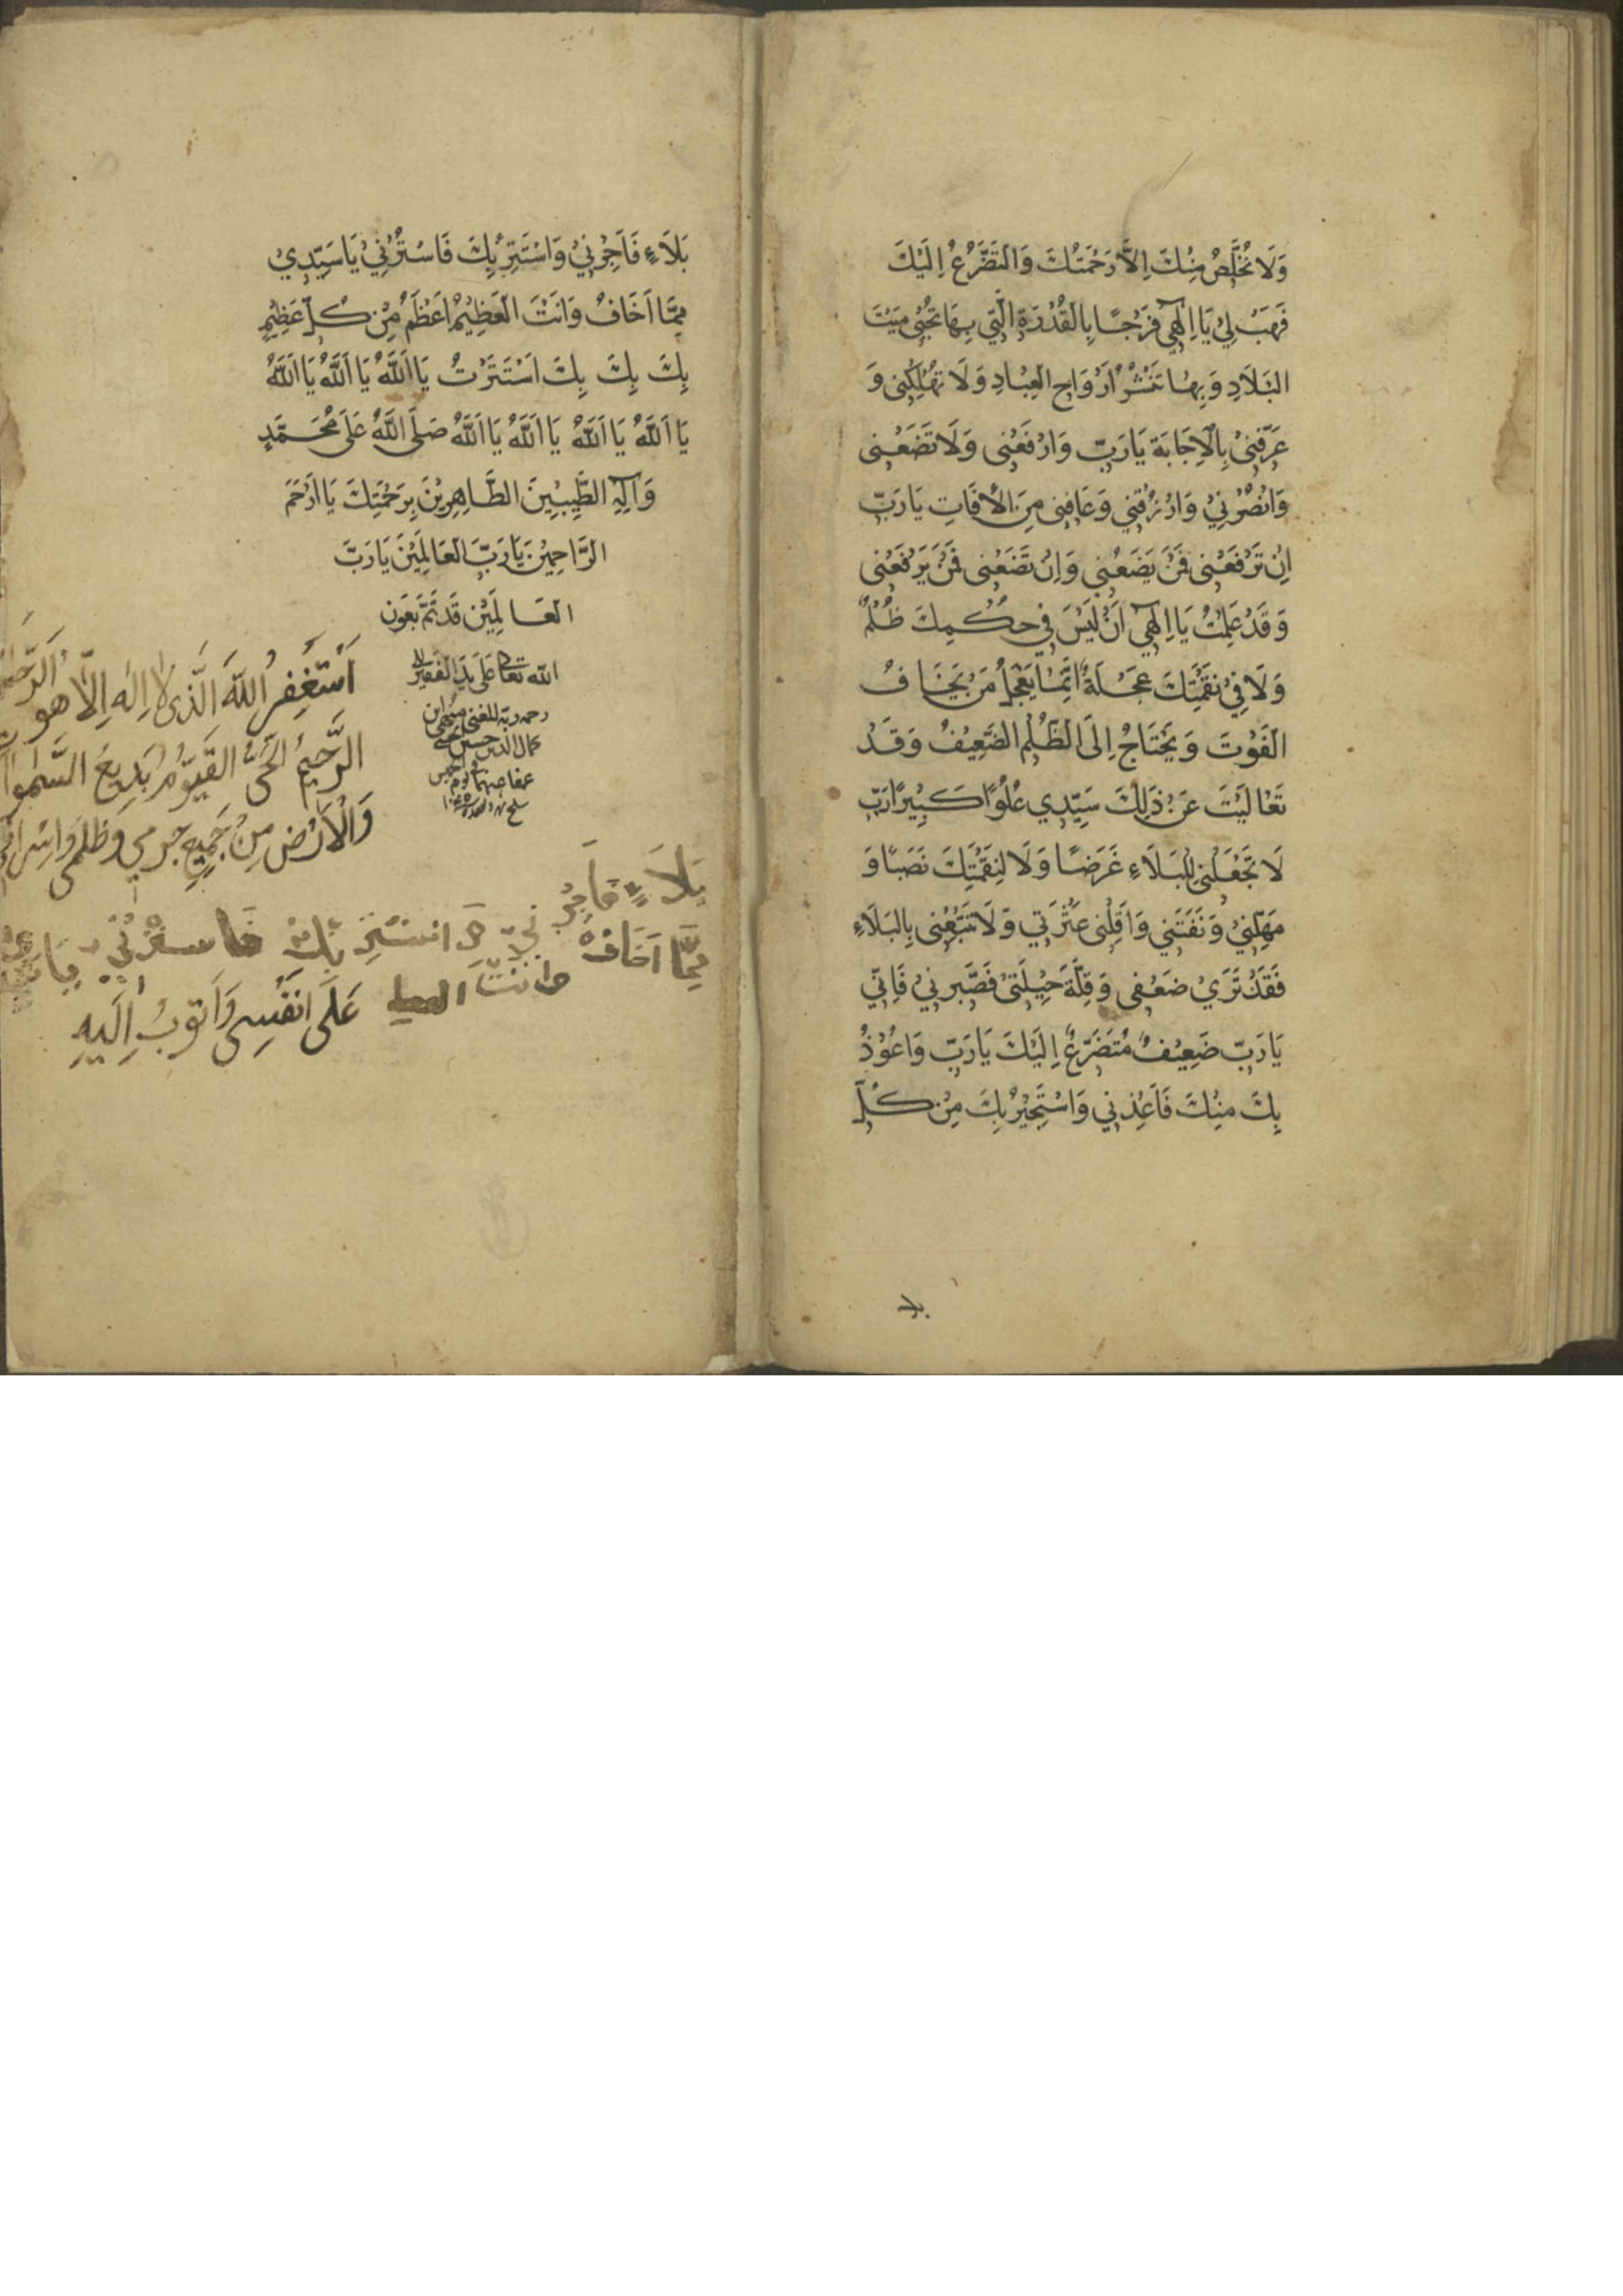 وَلَا تُخَلِّصُ مِنْكَ اِلَّا رَحْمَتُكَ وَالتَّضَرُّعُ اِلَيْكَ
فَهَبْ لِيْ يَا اِلٰهِي فَرَجًا بِالْقُدْرَةِ الَّتِي بِهَا تُحْيِي مَيْتَ
الْبِلَادِ وَبِهَا تَنْشُرُ اَرْوَاحَ الْعِبَادِ وَلَا تُهْلِكْنِى وَ
عَرِّفْنِىْ بِالْاِجَابَةِ يَا رَبِّ وَارْفَعْنِى وَلَا تَضَعْنِى
وَانْصُرْنِيْ وَارْزُقْنِي وَعَافِنِى مِنَ الْاٰفَاتِ يَا رَبِّ
اِنْ تَرْفَعْنِى فَمَنْ يَضَعُنِي وَاِنْ تَضَعْنِى فَمَنْ يَرْفَعُنِى
وَقَدْ عَلِمْتُ يَا اِلٰهِي اَنْ لَيْسَ فِي حُكْمِكَ ظُلْمٌ
وَلَا فِيْ نَقِمَتِكَ عَجَلَةٌ اِنَّمَا يَعْجَلُ مَنْ يَخَافُ
الْفَوْتَ وَيَحْتَاجُ اِلَى الظُّلْمِ الضَّعِيْفُ وَقَدْ
تَعَالَيْتَ عَنْ ذٰلِكَ سَيِّدِي عُلُوًّا كَبِيْرًا رَبِّ
لَا تَجْعَلْنِى لِلْبَلَاءِ غَرَضًا وَلَا لِنِقْمَتِكَ نَصَبًا وَ
مَهِّلْنِيْ وَنَفِّسْنِي وَاَقِلْنِى عَثْرَتِي وَلَا تَتْبَعْنِى بِالْبَلَاءِ
فَقَدْ تَرَيْ ضَعْفِى وَقِلَّةَ حِيْلَتِىْ فَصَبِّرْنِيْ فَاِنِّي
يَا رَبِّ ضَعِيْفٌ مُتَضَرِّعٌ اِلَيْكَ يَا رَبِّ وَاَعُوْذُ
بِكَ مِنْكَ فَاَعِذْنِي وَاَسْتَجِيْرُ بِكَ مِنْ كُلِّ
بلا
بَلَاءٍ فَاَجِرْنِيْ وَاَسْتَتِرُ بِكَ فَاسْتُرْنِيْ يَا سَيِّدِيْ
مِمَّا اَخَافُ وَاَنْتَ الْعَظِيْمُ اَعْظَمُ مِنْ كُلِّ عَظِيْمٍ
بِكَ بِكَ بِكَ اسْتَتَرْتُ يَا اَللّٰهُ يَا اَللّٰهُ يَا اَللّٰهُ
يَا اَللّٰهُ يَا اَللّٰهُ يَا اَللّٰهُ يَا اَللّٰهُ صَلِّ اللّٰهُ عَلَى مُحَمَّدٍ
وَاٰلِهِ الطَّيِّبِيْنَ الطَّاهِرِيْنَ بِرَحْمَتِكَ يَا اَرْحَمَ
الرَّاحِمِيْنَ يَا رَبَّ الْعَالَمِيْنَ يَا رَبَّ
الْعَالَمِيْنَ قَدْ تَمَّ بَعَون
الله تعالى عَلَى يَدِ الْفَقِيْرِ
كمال الدين حسين
عفا عنهما
اَسْتَغْفِرُ اللهَ الَّذِى لا اِلٰهَ اِلَّا هو الرَّحمٰنُ
الرَّحِيمُ الحَىُّ القَيُّومُ بَدِيعُ السَّمٰوات
وَالْاَرْضِ مِنْ جَمِيعِ جرمى وَظلمى وَاِسْرافى
بَلَاءٍ فَاَجِرْنِي وَ استتر بِكَ فاسترني يا
مِمَّا اَخَافُ وانت
عَلَى انَفْسِى وَاَتوبُ اِلَيهِ